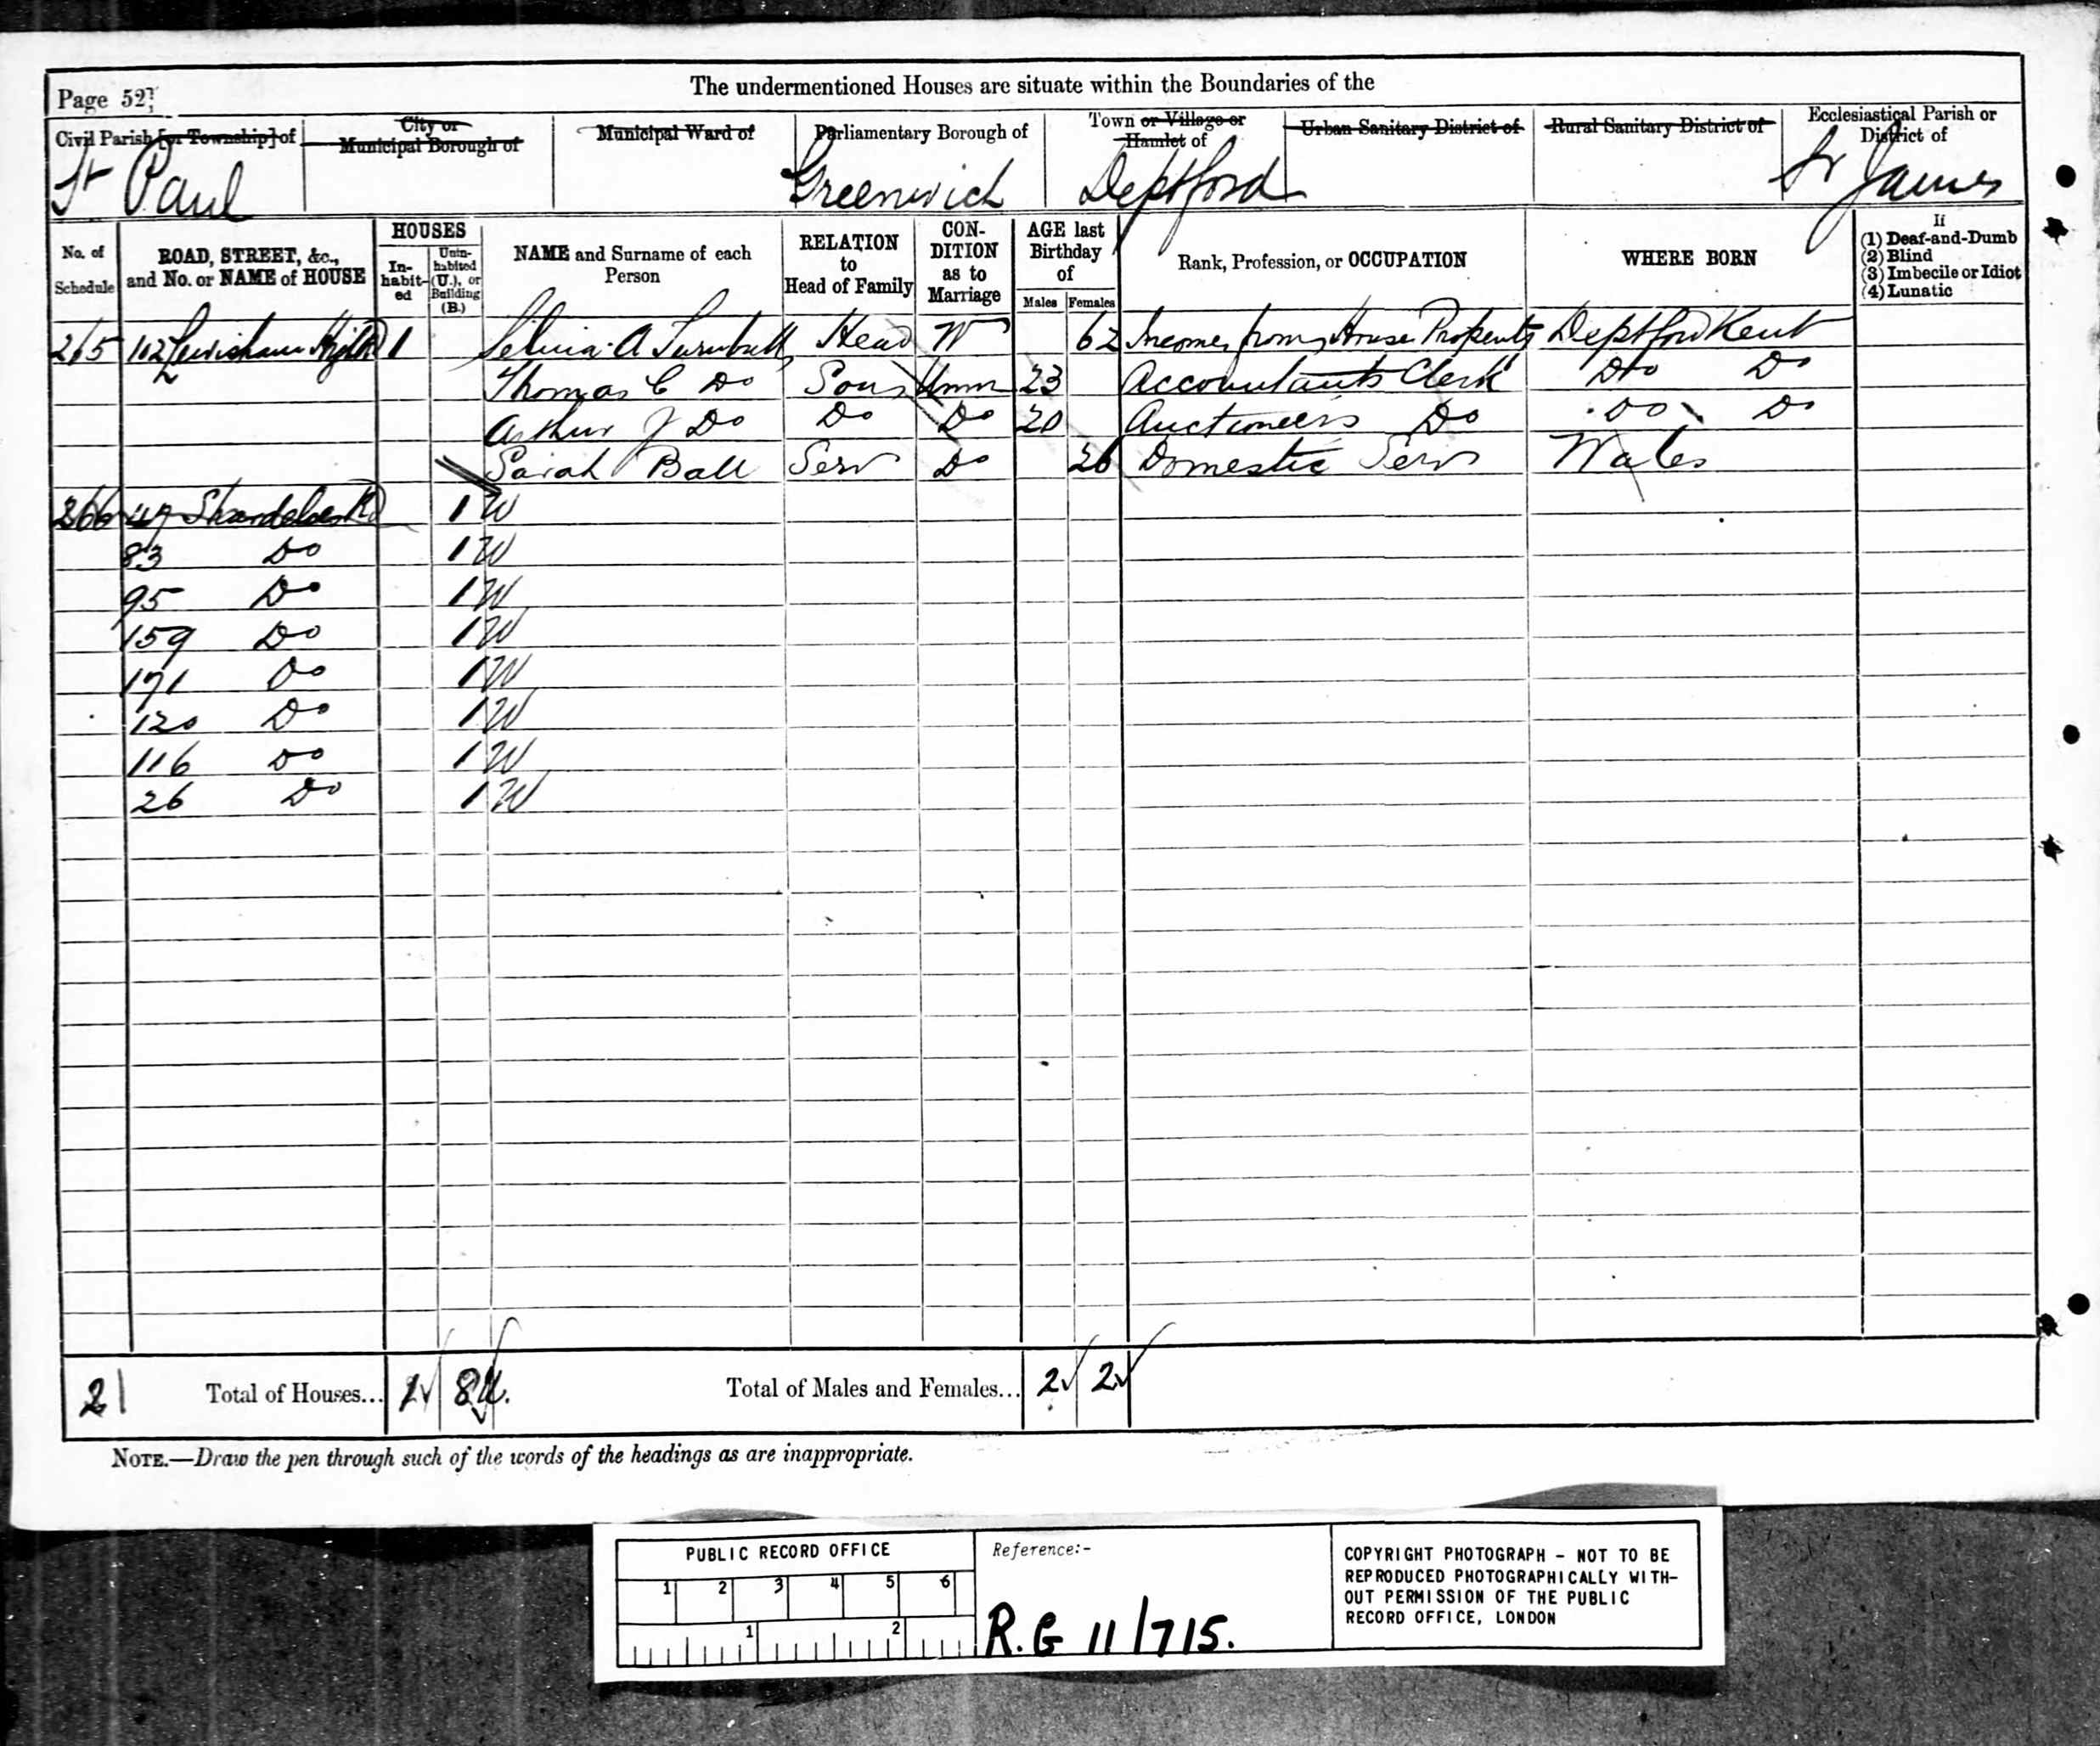 The undermentioned Houses are situate within the Boundaries of the
Page 52
Civil Parish [or Township] of
City or Municipal Borough of
Municipal Ward of
Parliamentary Borough of
Town or Village or Hamlet of
Urban Sanitary District of
Rural Sanitary District of
Ecclesiastical Parish or District of
St Paul Greenwich Deptford St James
No. of Schedule
ROAD, STREET, &c., and No. or NAME of HOUSE
HOUSES
In-habit-ed
Unin-habited (U.), or Building (B.)
NAME and Surname of each Person
RELATION to Head of Family
CON-DITION as to Marriage
AGE last Birthday of
Males Females
Rank, Profession, or OCCUPATION
WHERE BORN
If
(1) Deaf-and-Dumb
(2) Blind
(3) Imbecile or Idiot
(4) Lunatic
265 102 Lewisham High Rd 1 A Turnbull Head W 62 Income from House Property Deptford Kent
Thomas C Do Son Unm 23 Accountants Clerk Do Do
Arthur J Do Do Do 20 Auctioneers Do Do Do
Sarah Ball Serv Do 26 Domestic Serv Wales
266 47 Shardeloes Rd 1 U
83 Do 1 U
95 Do 1 U
159 Do 1 U
171 Do 1 U
120 Do 1 U
116 Do 1 U
26 Do 1 U
2 Total of Houses... 1 8 U. Total of Males and Females... 2 2
NOTE.—Draw the pen through such of the words of the headings as are inappropriate.
PUBLIC RECORD OFFICE
1 2 3 4 5 6
1 2
Reference:-
R.G 11/715.
COPYRIGHT PHOTOGRAPH - NOT TO BE
REPRODUCED PHOTOGRAPHICALLY WITH-
OUT PERMISSION OF THE PUBLIC
RECORD OFFICE, LONDON